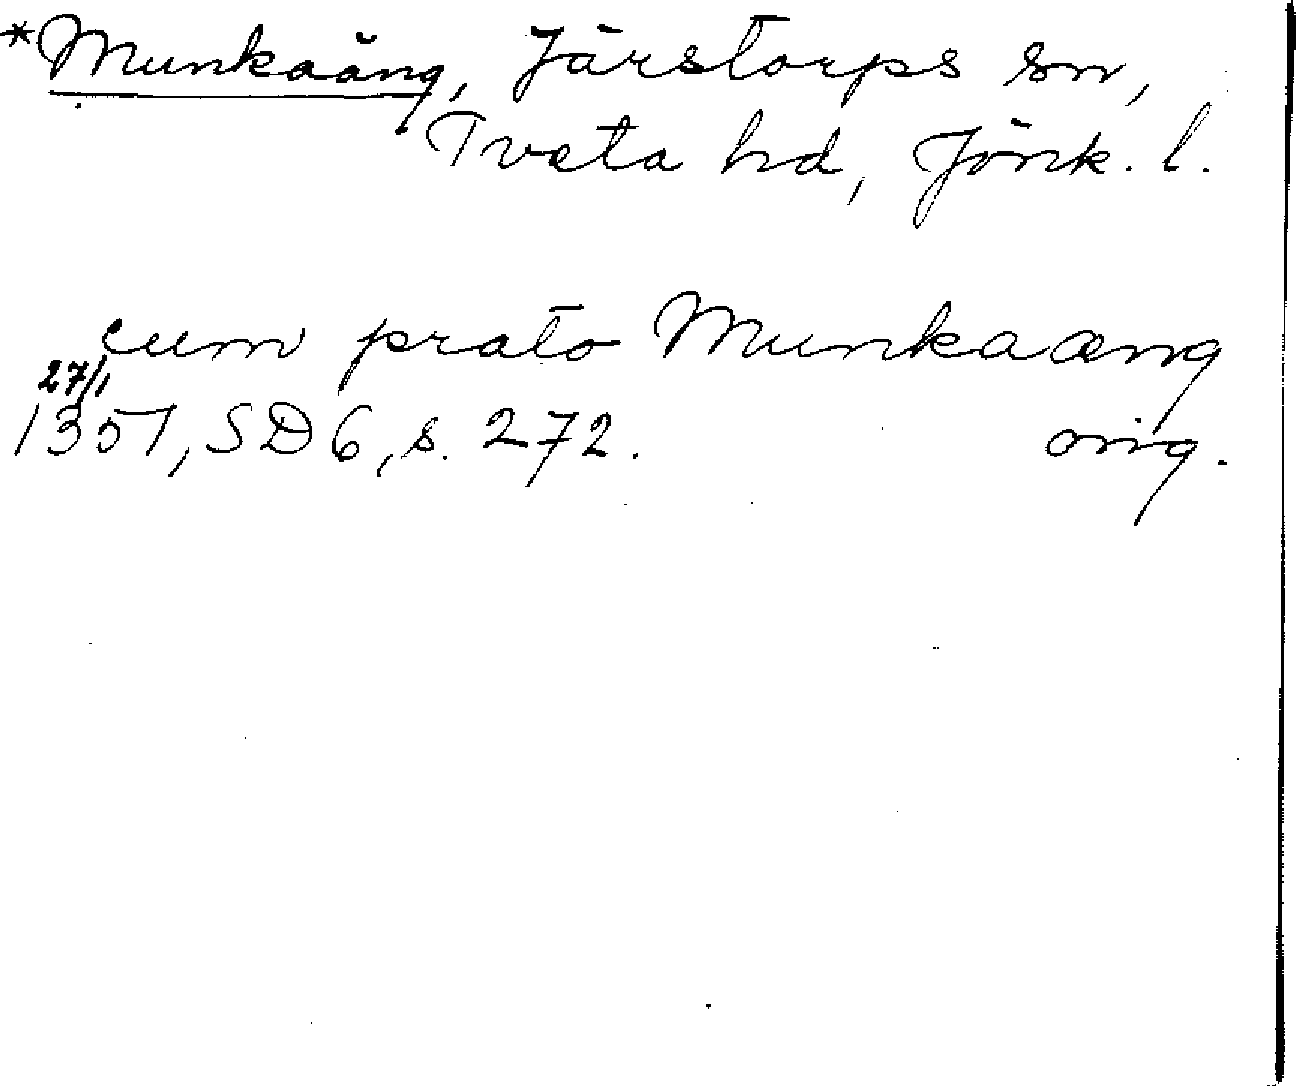 *Munkaäng, Järstorps sn,
Tveta hd, Jönk. l.
cum prato Munkaæng
27/1
1351, SD 6, s. 272. orig.